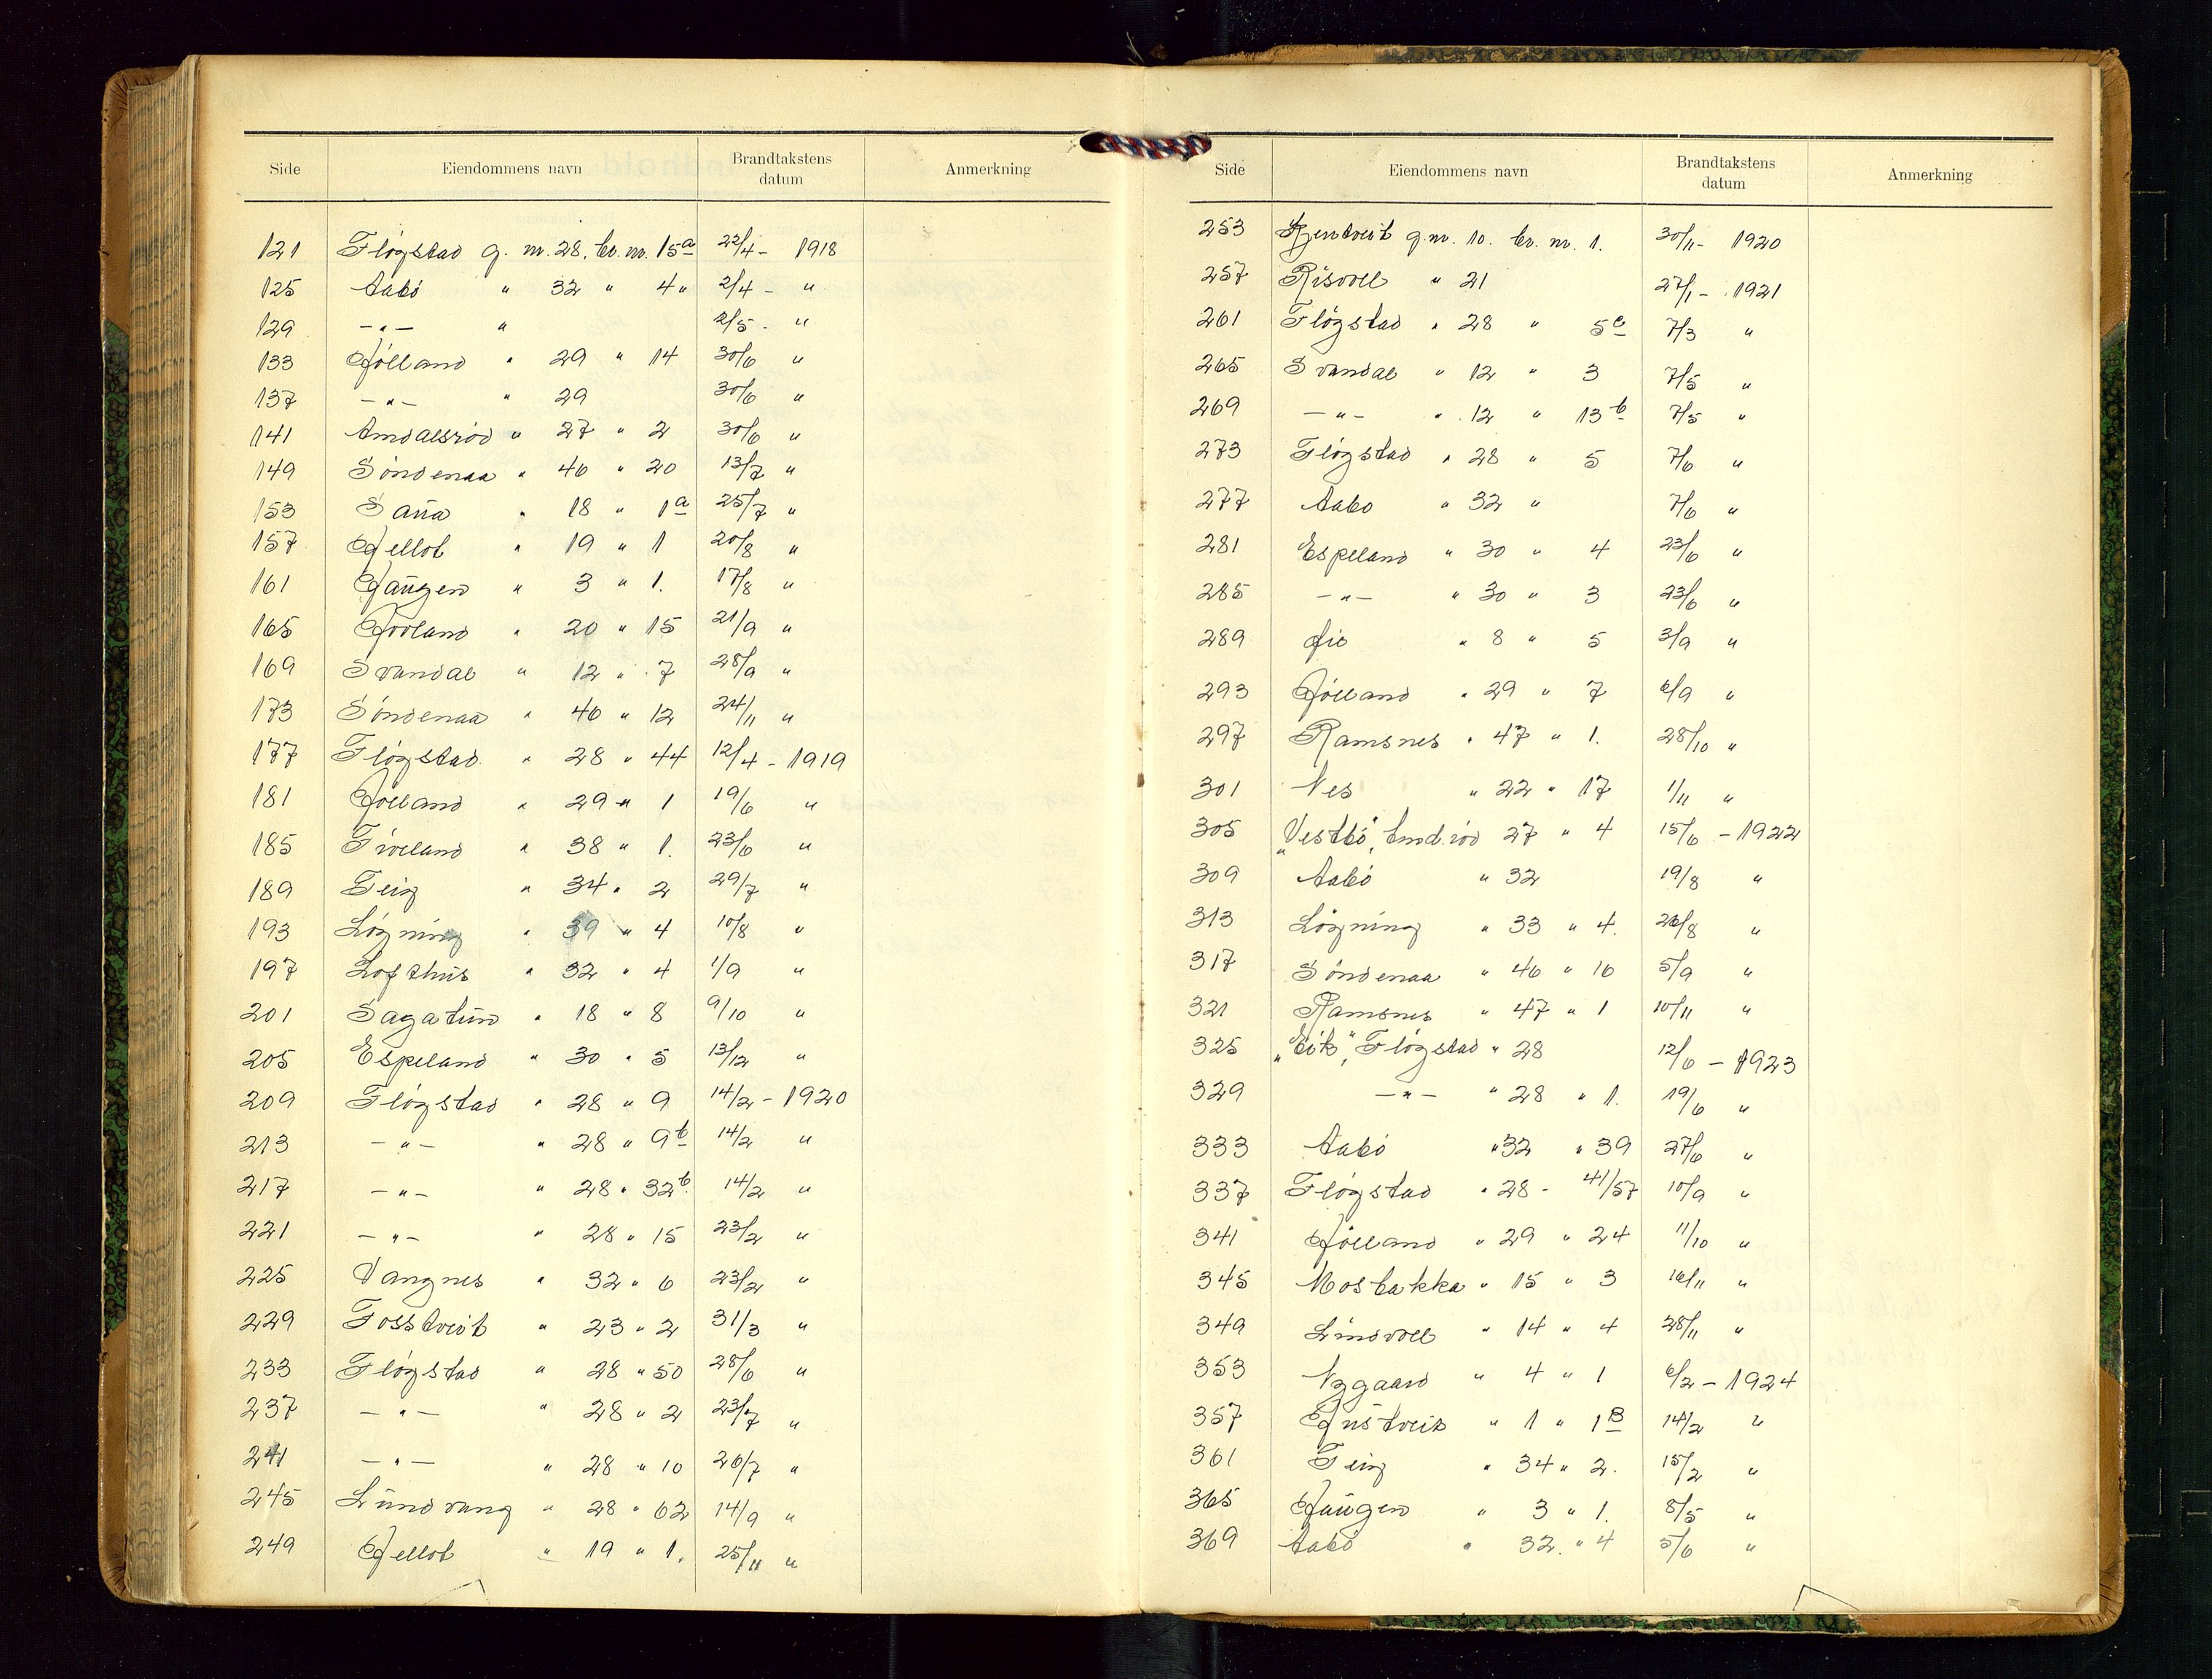 Side Eiendommens navn Brandtakstens datum Anmerkning
121 Fløgstad g. nr. 28. br. nr. 15a 22/4 - 1918
125 Aabö " 32 " 4 " 2/4 - "
129 -"- " 2/5 - "
133 Hölland " 29 " 14 30/6 "
137 -"- " 29 30/6 "
141 Amdalsröd " 27 " 2 30/6 "
149 Söndenaa " 46 " 20 13/7 "
153 Sana " 18 " 1a 25/7 "
157 " 19 " 1 20/8 "
161 Haugen " 3 " 1. 17/8 "
165 Hovland " 20 " 15 21/9 "
169 Svandal " 12 " 7 28/9 "
173 Söndenaa " 46 " 12 24/11 "
177 Fløgstad " 28 " 44 12/4 - 1919
181 Hölland " 29 " 1 19/6 "
185 Tveland " 38 " 1. 23/6 "
189 Teig " 34 " 2 29/7 "
193 Lögning " 39 " 4 10/8 "
197 Lofthus " 32 " 4 1/9 "
201 Sagatun " 18 " 8 9/10 "
205 Espeland " 30 " 5 13/12 "
209 Fløgstad " 28 " 9 14/2 - 1920
213 -"- " 28 " 9b 14/2 "
217 -"- " 28 " 32b 14/2 "
221 -"- " 28 " 15 23/2 "
225 Vangnes " 32 " 6 23/2 "
229 Fosstveit " 23 " 2 31/3 "
233 Fløgstad " 28 " 50 28/6 "
237 -"- " 28 " 2 23/7 "
241 -"- " 28 " 10 26/7 "
245 Lundvang " 28 " 62 14/9 "
249 " 19 " 1. 25/11 "
Side Eiendommens navn Brandtakstens datum Anmerkning
253 g. nr. 10. br. nr. 1. 30/11 - 1920
257 Risvoll " 21 27/1 - 1921
261 Fløgstad " 28 " 5c 7/3 "
265 Svandal " 12 " 3 7/5 "
269 -"- " 12 " 13b 7/5 "
273 Fløgstad " 28 " 5 7/6 "
277 Aabo " 32 " 7/6 "
281 Espeland " 30 " 4 23/6 "
285 -"- " 30 " 3 23/6 "
289 " 8 " 5 3/9 "
293 Hölland " 29 " 7 6/9 "
297 Ramsnes " 47 " 1. 28/10 "
301 Nes " 22 " 17 1/11 "
305 "Vestbö", Amd.röd 27 " 4 15/6 - 1922
309 Aabö " 32 19/8 "
313 Lögning " 33 " 4. 26/8 "
317 Söndenaa " 46 " 16 5/9 "
321 Ramsnes " 47 " 1 10/11 "
325 "Eik", Fløgstad " 28 12/6 - 1923
329 -"- " 28 " 1. 19/6 "
333 Aabö " 32 " 39 27/6 "
337 Fløgstad " 28 - 41/57 10/9 "
341 Hölland " 29 " 24 11/10 "
345 Mosbakka " 15 " 3 16/11 "
349 Lindvoll " 14 " 4 28/11 "
353 Nygaard " 4 " 1 6/2 - 1924
357 " 1 " 1B 14/2 "
361 Teig " 34 " 2. 15/2 "
365 Haugen " 3 " 1. 8/5 "
369 Aabö " 32. " 4 5/6 "